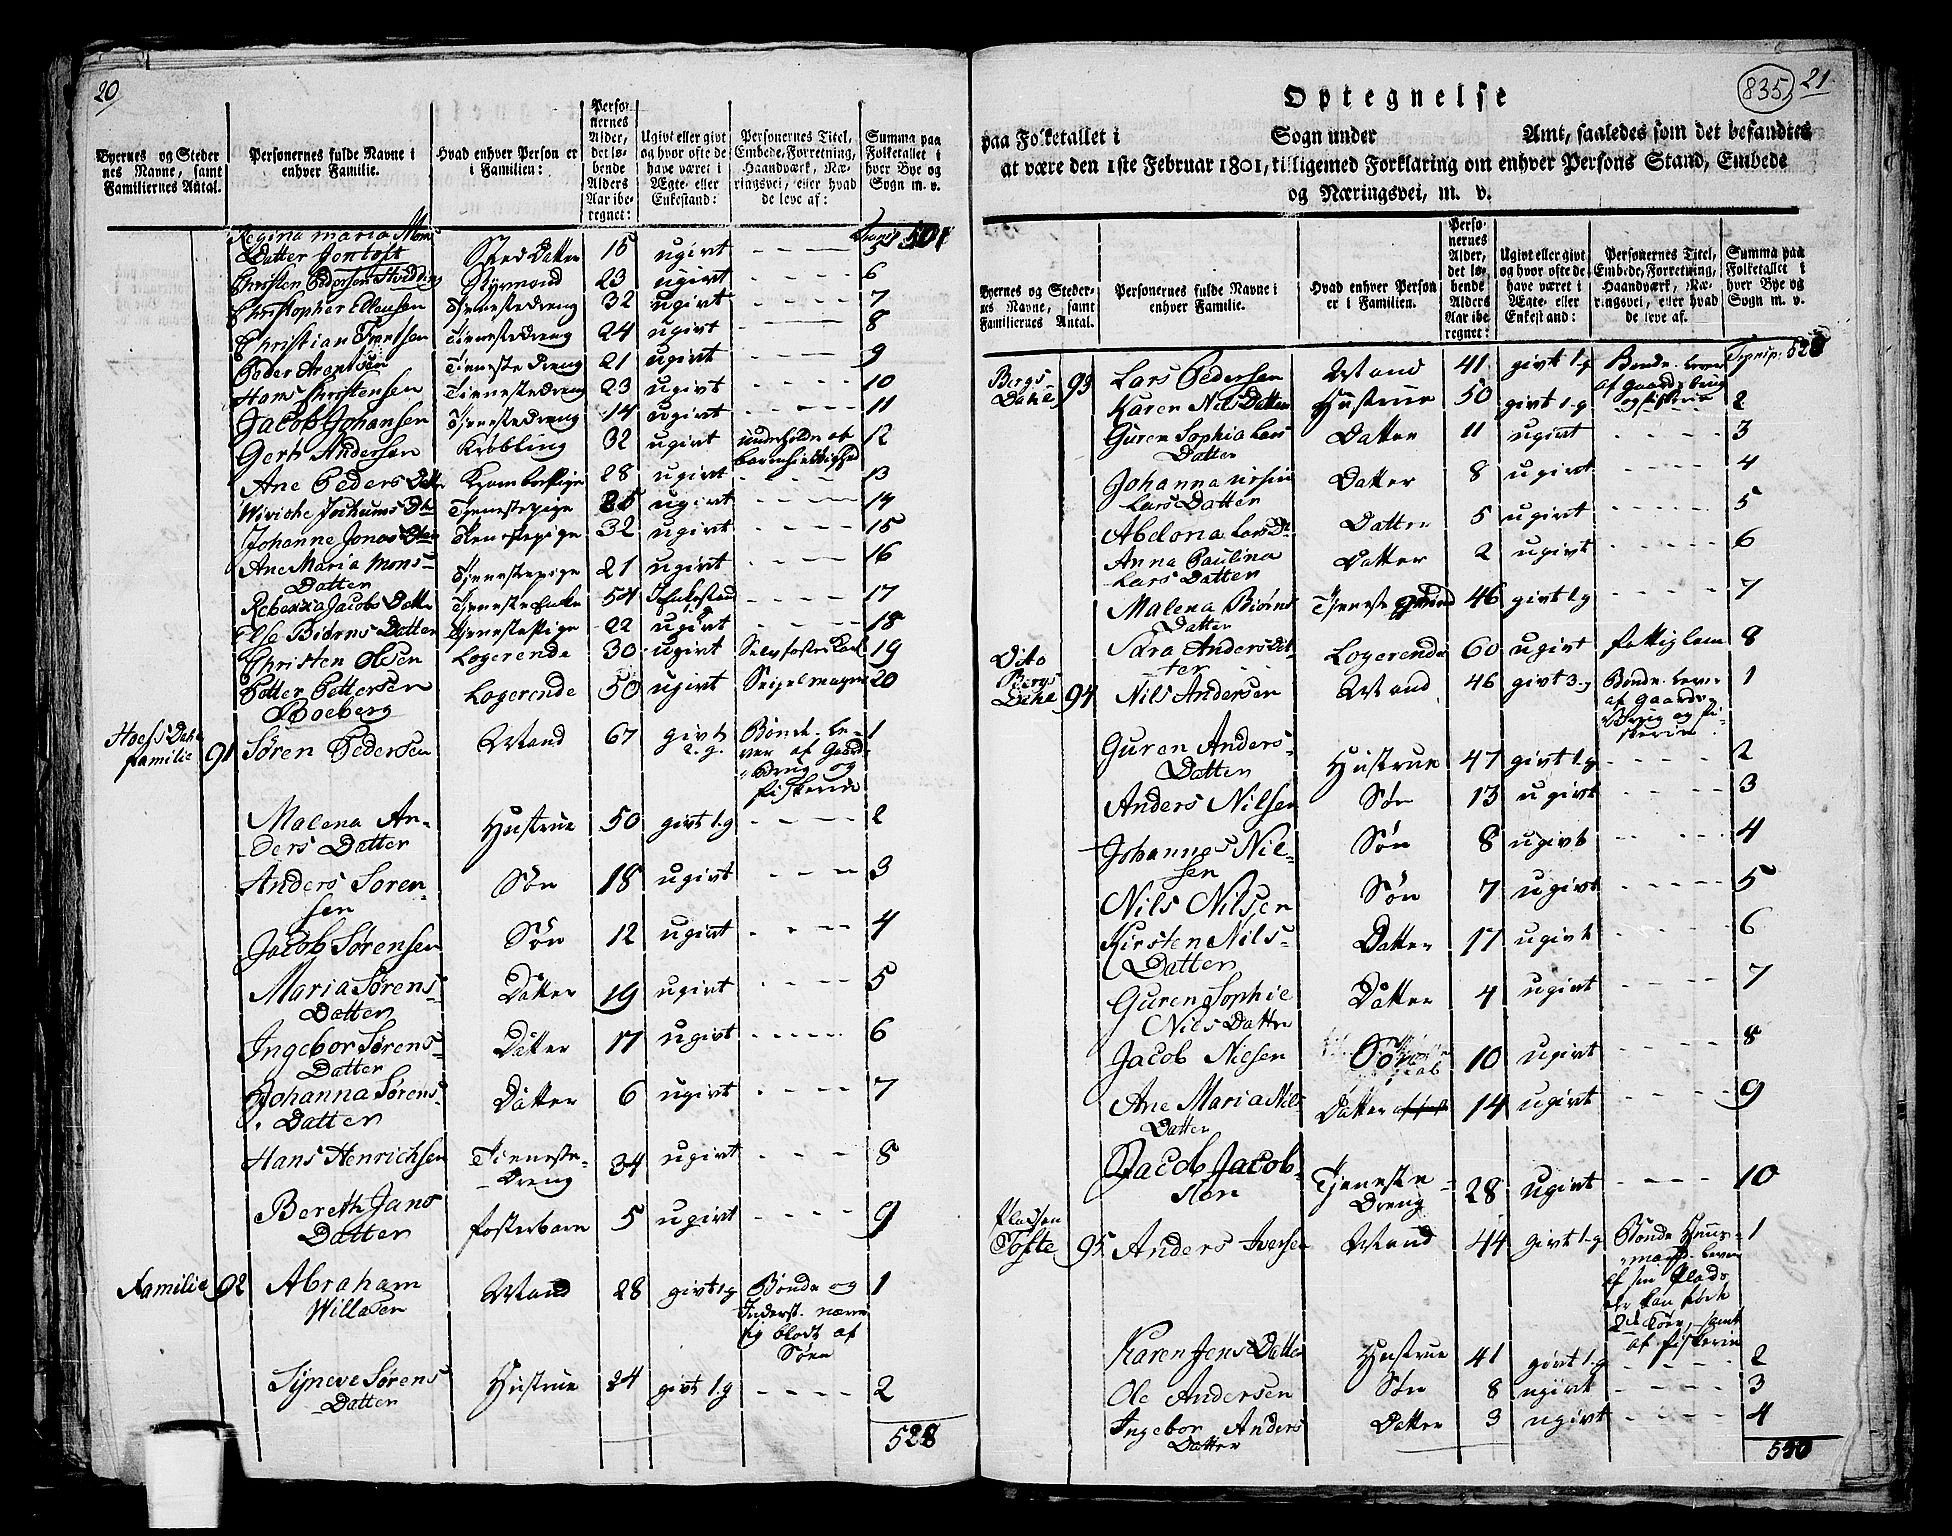 20
Byernes og Steder
nes Navne, samt
Familiernes Antal.
Personernes fulde Navne i
enhver Familie.
Hvad enhver Person er
i Familien:
Perso-
nernes
Alder,
det lø-
bende
Alders
Aar ibe-
regnet:
Ugivt eller givt
og hvor ofte de
have været i
Ægte- eller
Enkestand:
Personernes Titel,
Embede, Forretning,
Haandværk, Næ-
ringsvei, eller hvad
de leve af:
Summa paa
Folketallet i
hver Bye og
Sogn m. v.
Regina maria Mons Transp 501
Datter Jontoft Sted Datter 15 ugivt - - - - 5
Christen Pedersen 23 ugivt - - - - 6
Christopher Ellensen Tjenestedreng 32 ugivt - - - - 7
Christian Frantsen Tienestedreng 24 ugivt - - - - 8
Peder Arentsen Tienestedreng 21 ugivt - - - - 9
Hans Christensen Tienestedreng 23 ugivt - - - - 10
Jacob Johansen Tjenestedreng 14 ugivt - - - - 11
Gert Andersen Krøbling 32 ugivt underholdes af 12
barmhiertighed
Ane Peders Datter 28 ugivt - - - - 13
Wiviche Jochums Dtr Tjenestepige 25 ugivt - - - - 14
Johanne Jonas Dtr Tienestepige 32 ugivt - - - - 15
Ane Maria Mons- Tjenestepige 21 ugivt - - - - 16
Datter
Rebecca Jacobs Datter Tjeneste Enke 54 Enkestand - - - - 17
Else Biørns Datter Tjenestepige 22 ugivt - - - - 18
Christen Olsen Logerende 30 ugivt Selvfosterkarl 19
Petter Pettersen Logerende 50 ugivt 20
Roeberg
Hoefs Dahle
familie 91 Søren Pedersen Mand 67 givt Bonde le- 1
2. g. ver af Gaard
Brug og
fiskerie
Malena An- Hustrue 50 givt 1.g - - - - 2
ders Datter
Anders Soren- Søn 18 ugivt - - - - 3
sen
Jacob Sørensen Søn 12 ugivt - - - - 4
Maria Sørens- Datter 19 ugivt - - - - 5
Datter
Ingebor Sørens- Datter 17 ugivt - - - - 6
Datter
Johanna Sørens- Datter 6 ugivt - - - - 7
Datter
Hans Henrichsen Tieneste- 34 ugivt - - - 8
Dreng
Bereth Jans fosterbarn 5 ugivt - - - - 9
Datter
Familie 92 Abraham Mand 28 givt 1.g Bonde og 1
Willasen Inderst. nærer
sig blodt af
Søen
Syneve Sørens Hustrue 24 givt 1.g - - - - 2
Datter
528
835 21
Optegnelse
paa Folketallet i Sogn under Amt, saaledes som det befandtes
at være den 1ste Februar 1801, tilligemed Forklaring om enhver Persons Stand, Embede
og Næringsvei, m. v.
Byernes og Steder-
nes Navne, samt
Familiernes Antal.
Personernes fulde Navne i
enhver Familie.
Hvad enhver Person
er i Familien.
Perso-
nernes
Alder,
det lø-
bende
Alders
Aar ibe-
regnet:
Ugivt eller givt
og hvor ofte de
have været i
Ægte- eller
Enkestand:
Personernes Titel,
Embede, Forretning,
Haandværk, Næ-
ringsvei, eller hvad
de leve af.
Summa paa
Folketallet i
hver Bye og
Sogn m. v.
Transp. 528
Bergs- 93 Lars Pedersen Mand 41 givt 1.g Bonde lever
Dahle af Gaards brug
Karen Nils Datter Hustrue 50 givt 1.g og fiskerie 2
Guren Sophia Lars Datter 11 ugivt - - - - 3
Datter
Johanna Datter 8 ugivt - - - - 4
Lars Datter
Abelona Lars Dt. Datter 5 ugivt - - - - 5
Anna Paulina Datter 2 ugivt - - - - 6
Lars Datter
Malena Biørns Tjeneste 46 givt 1.g - - - - 7
Datter
Dito Sara Anders Dat- Logerende 60 ugivt fattiglem 8
ter
Bergs
Dahle 94 Nils Andersen Mand 46 givt 3.g Bonde lever 1
af Gaards
Brug og fi-
skerie
Guren Anders- Hustrue 47 givt 1.g - - - - 2
Datter
Anders Nilsen Søn 13 ugivt - - - - 3
Johannes Nil- Søn 8 ugivt - - - - 4
sen
Nils Nilsen Søn 7 ugivt - - - - 5
Kirsten Nils- Datter 17 ugivt - - - - 6
Datter
Guren Sophie Datter 4 ugivt - - - - 7
Nils Datter
Jacob Nielsen Søn 10 ugivt - - - - 8
Ane Maria Nils Datter 14 ugivt - - - - 9
Datter
Jacob Jacob- Tjeneste- 28 ugivt - - - - 10
sen Dreng
Pladsen
Tofte 95 Anders Iversen Mand 44 givt 1.g Bonde Huus- 1
mand lever
af sin Plads,
der kan føde
2de Køer, samt
af fiskerie
Karen Jens Datter Hustrue 41 givt 1.g - - - - 2
Ole Andersen Søn 8 ugivt - - - - 3
Ingebor Anders Datter 3 ugivt - - - - 4
Datter
550